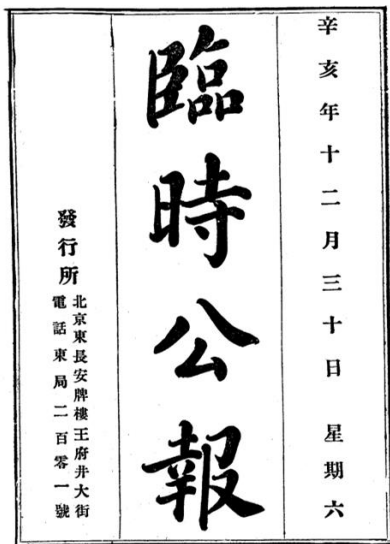 辛亥年十二月三十日　星期六
臨時公報
發行所
北京東長安牌樓王府井大街
電話東局二百零一號